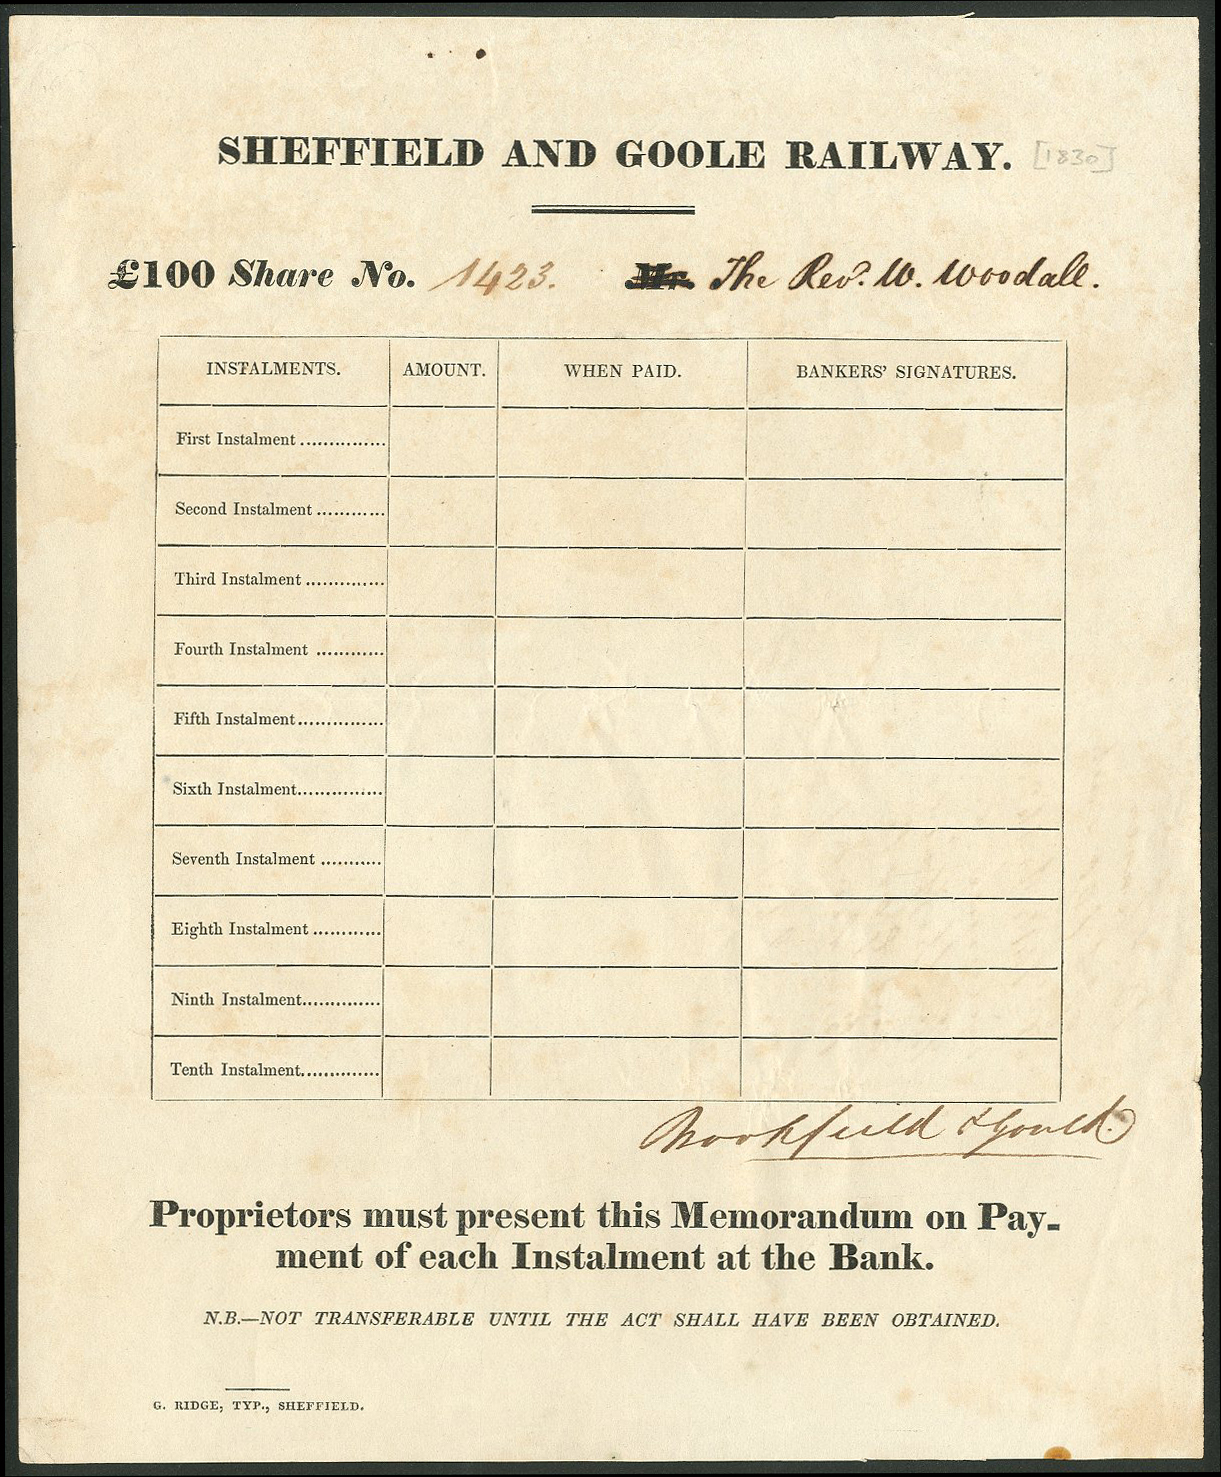 SHEFFIELD AND GOOLE RAILWAY. [1830]
£100 Share No. 1423. Mr. The Rev. W. Woodall.
INSTALMENTS. AMOUNT. WHEN PAID. BANKERS' SIGNATURES.
First Instalment ...............
Second Instalment ............
Third Instalment ..............
Fourth Instalment ............
Fifth Instalment ...............
Sixth Instalment ...............
Seventh Instalment ...........
Eighth Instalment ............
Ninth Instalment ..............
Tenth Instalment ..............
Brookfield & Gould.
Proprietors must present this Memorandum on Pay-
ment of each Instalment at the Bank.
N.B.—NOT TRANSFERABLE UNTIL THE ACT SHALL HAVE BEEN OBTAINED.
G. RIDGE, TYP., SHEFFIELD.